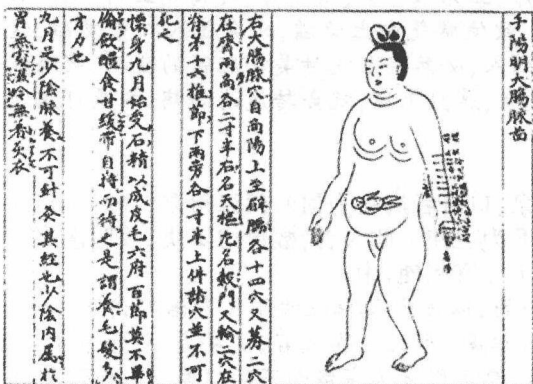 手陽明大腸脉啚
右大腸脉穴自商陽上至臂臑各十四穴又募二穴
在臍兩旁各二寸半右名天樞左名穀門又輸二穴在
脊第十六椎節下兩旁各一寸半上件諸穴並不可
犯之
懷身九月始受石精以成皮毛六府百節莫不畢
備飲醴食甘緩帶自持而待之是謂養毛髮多
才力也
九月足少陰脉養不可針灸其經也少陰内属於
胃無處濕冷無着炙衣